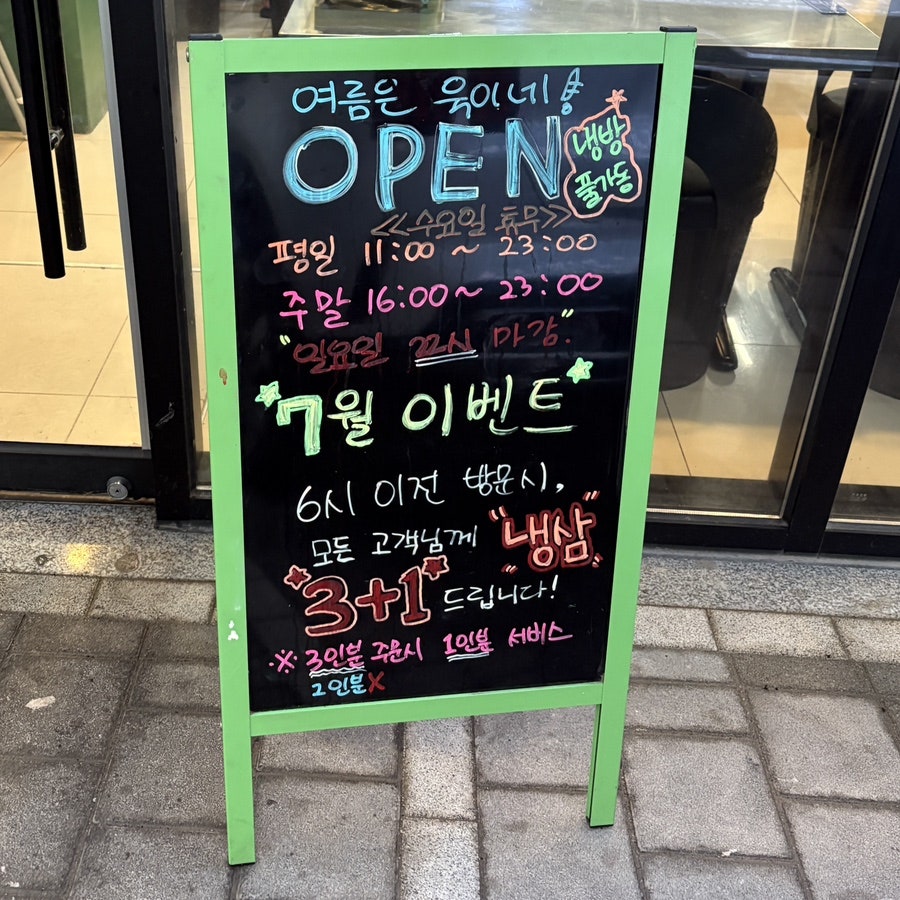 여름은 욱이네!
OPEN
냉방
풀가동
<<수요일 휴무>>
평일 11:00 ~ 23:00
주말 16:00 ~ 23:00
"일요일 22시 마감."
7월 이벤트
6시 이전 방문시,
모든 고객님께 "냉삼"
3+1 드립니다!
※ 3인분 주문시 1인분 서비스
2인분 X